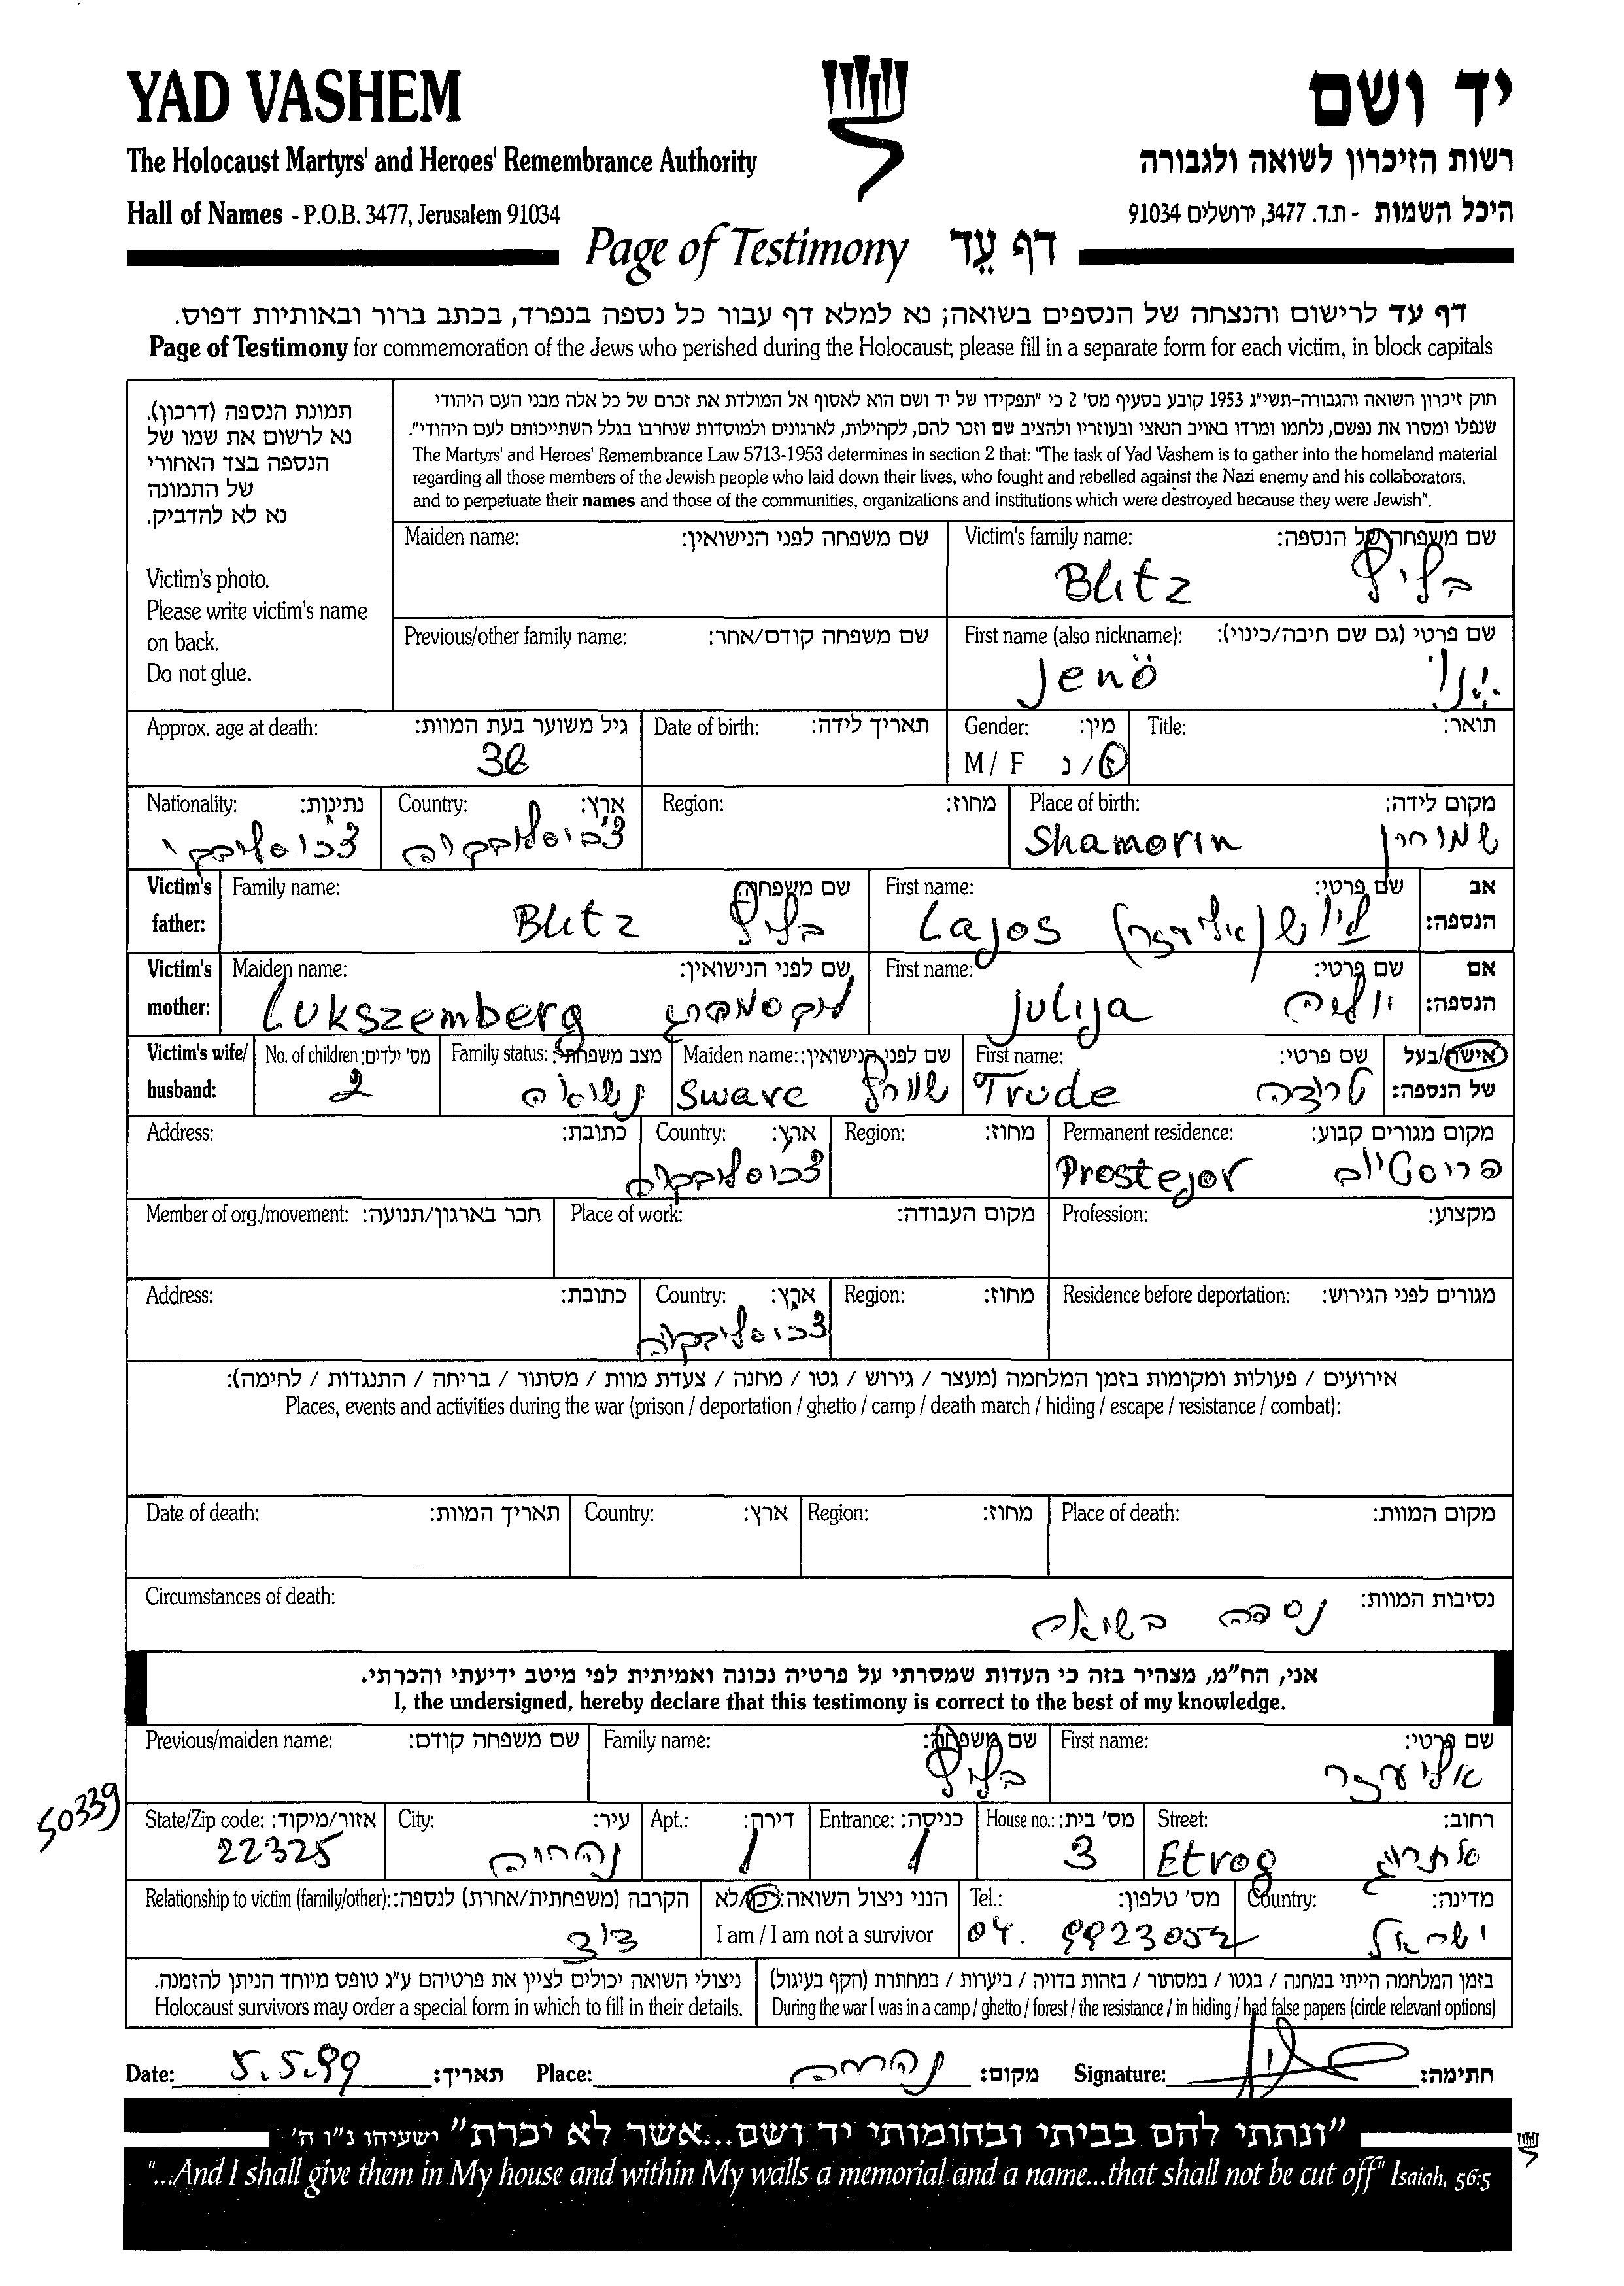 YAD VASHEM
יד ושם
The Holocaust Martyrs' and Heroes' Remembrance Authority
רשות הזיכרון לשואה ולגבורה
Hall of Names - P.O.B. 3477, Jerusalem 91034
היכל השמות - ת.ד. 3477, ירושלים 91034
Page of Testimony דף עֵד
דף עד לרישום והנצחה של הנספים בשואה; נא למלא דף עבור כל נספה בנפרד, בכתב ברור ובאותיות דפוס.
Page of Testimony for commemoration of the Jews who perished during the Holocaust; please fill in a separate form for each victim, in block capitals
תמונת הנספה (דרכון).
נא לרשום את שמו של
הנספה בצד האחורי
של התמונה
נא לא להדביק.
Victim's photo.
Please write victim's name
on back.
Do not glue.
חוק זיכרון השואה והגבורה-תשי"ג 1953 קובע בסעיף מס' 2 כי "תפקידו של יד ושם הוא לאסוף אל המולדת את זכרם של כל אלה מבני העם היהודי
שנפלו ומסרו את נפשם, נלחמו ומרדו באויב הנאצי ובעוזריו ולהציב שם וזכר להם, לקהילות, לארגונים ולמוסדות שנחרבו בגלל השתייכותם לעם היהודי".
The Martyrs' and Heroes' Remembrance Law 5713-1953 determines in section 2 that: "The task of Yad Vashem is to gather into the homeland material
regarding all those members of the Jewish people who laid down their lives, who fought and rebelled against the Nazi enemy and his collaborators,
and to perpetuate their names and those of the communities, organizations and institutions which were destroyed because they were Jewish".
Maiden name: שם משפחה לפני הנישואין:
Victim's family name: שם משפחה של הנספה:
Blitz בליץ
Previous/other family name: שם משפחה קודם/אחר:
First name (also nickname): שם פרטי (גם שם חיבה/כינוי):
Jenö ינו
Approx. age at death: גיל משוער בעת המוות:
Date of birth: תאריך לידה:
Gender: מין:
Title: תואר:
M / F ז / נ
Nationality: נתינות:
Country: ארץ:
Region: מחוז:
Place of birth: מקום לידה:
צ'כוסלובקי
צ'כוסלובקיה
Shamorin שמורין
Victim's father: Family name: שם משפחה:
First name: שם פרטי:
אב הנספה:
Blitz בליץ
Lajos לויוש (אליעזר)
Victim's mother: Maiden name: שם לפני הנישואין:
First name: שם פרטי:
אם הנספה:
Lukszemberg לוקסמברג
Julija יוליה
Victim's wife/ husband: No. of children: מס' ילדים:
Family status: מצב משפחתי:
Maiden name: שם לפני הנישואין:
First name: שם פרטי:
אישה/בעל של הנספה:
2 נשואה Sware שוורץ Trude טרודה
Address: כתובת:
Country: ארץ:
Region: מחוז:
Permanent residence: מקום מגורים קבוע:
צ'כוסלובקיה
Prostejor פרוסטיוב
Member of org./movement: חבר בארגון/תנועה:
Place of work: מקום העבודה:
Profession: מקצוע:
Address: כתובת:
Country: ארץ:
Region: מחוז:
Residence before deportation: מגורים לפני הגירוש:
צ'כוסלובקיה
אירועים / פעולות ומקומות בזמן המלחמה (מעצר / גירוש / גטו / מחנה / צעדת מוות / מסתור / בריחה / התנגדות / לחימה):
Places, events and activities during the war (prison / deportation / ghetto / camp / death march / hiding / escape / resistance / combat):
Date of death: תאריך המוות:
Country: ארץ:
Region: מחוז:
Place of death: מקום המוות:
Circumstances of death: נסיבות המוות:
נספה בשואה
אני, הח"מ, מצהיר בזה כי העדות שמסרתי על פרטיה נכונה ואמיתית לפי מיטב ידיעתי והכרתי.
I, the undersigned, hereby declare that this testimony is correct to the best of my knowledge.
Previous/maiden name: שם משפחה קודם:
Family name: שם משפחה:
First name: שם פרטי:
בליץ
אליעזר
50339
State/Zip code: אזור/מיקוד:
City: עיר:
Apt.: דירה:
Entrance: כניסה:
House no.: מס' בית:
Street: רחוב:
22325 נהריה 1 1 3 Etrog אתרוג
Relationship to victim (family/other): הקרבה (משפחתית/אחרת) לנספה:
הנני ניצול השואה: כן/לא
I am / I am not a survivor
Tel.: מס' טלפון:
Country: מדינה:
דוד
04. 9923052
ישראל
ניצולי השואה יכולים לציין את פרטיהם ע"ג טופס מיוחד הניתן להזמנה.
Holocaust survivors may order a special form in which to fill in their details.
בזמן המלחמה הייתי במחנה / בגטו / במסתור / בזהות בדויה / ביערות / במחתרת (הקף בעיגול)
During the war I was in a camp / ghetto / forest / the resistance / in hiding / had false papers (circle relevant options)
Date: 5.5.99 תאריך:
Place: נהריה מקום:
Signature: חתימה:
"ונתתי להם בביתי ובחומותי יד ושם...אשר לא יכרת" ישעיהו נ"ו ה'
"...And I shall give them in My house and within My walls a memorial and a name...that shall not be cut off" Isaiah, 56:5